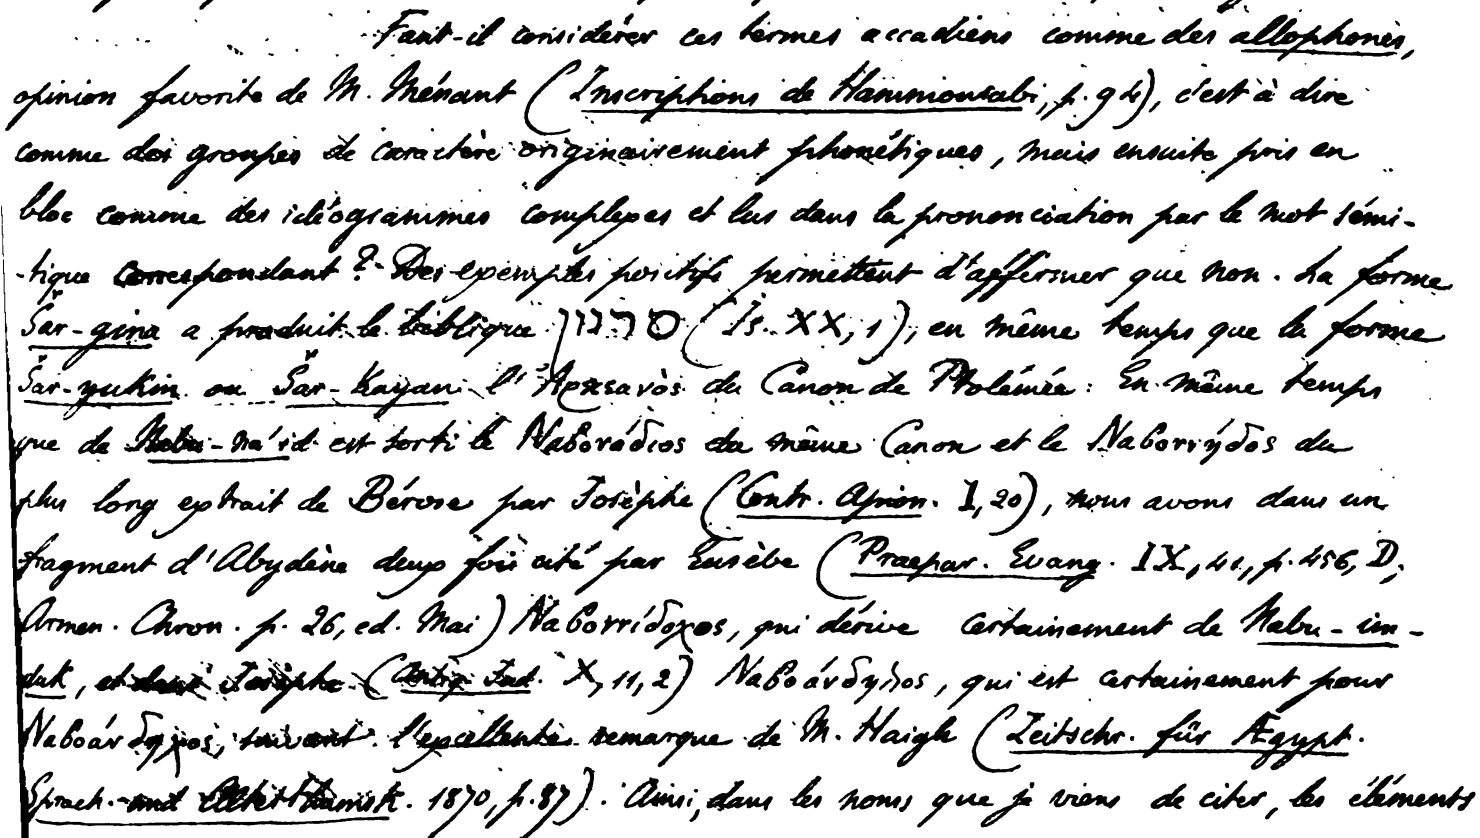 Faut-il considérer ces termes accadiens comme des allophones,
opinion favorite de M. Ménant (Inscriptions de Hammourabi, p. 94), c'est à dire
comme des groupes de caractère originairement phonétiques, mais ensuite pris en
bloc comme des idéogrammes complexes et lus dans la prononciation par le mot sémi-
-tique correspondant ? Des exemples positifs permettent d'affirmer que non. La forme
Šar-gina a produit le biblique סרגון (Is. XX, 1), en même temps que la forme
Šar-yukin ou Šar-kayan l'Ἀρκεανὸς du Canon de Ptolémée. En même temps
que de Nabu-na'id est sorti le Ναβονάδιος du même Canon et le Ναβοννήδος du
plus long extrait de Bérose par Josèphe (Contr. Apion. I, 20), nous avons dans un
fragment d'Abydène deux fois cité par Eusèbe (Praepar. Evang. IX, 41, p. 456, D;
Armen. Chron. p. 26, ed. Mai) Ναβοννίδοχος, qui dérive certainement de Nabu-im-
duk, et dans Josèphe (Antiq. Jud. X, 11, 2) Ναβοάνδηλος, qui est certainement pour
Ναβοάνδηχος, suivant l'excellente remarque de M. Haigh (Zeitschr. für Ægypt.
Sprach. und Alterthumsk. 1870, p. 87). Ainsi, dans les noms que je viens de citer, les éléments